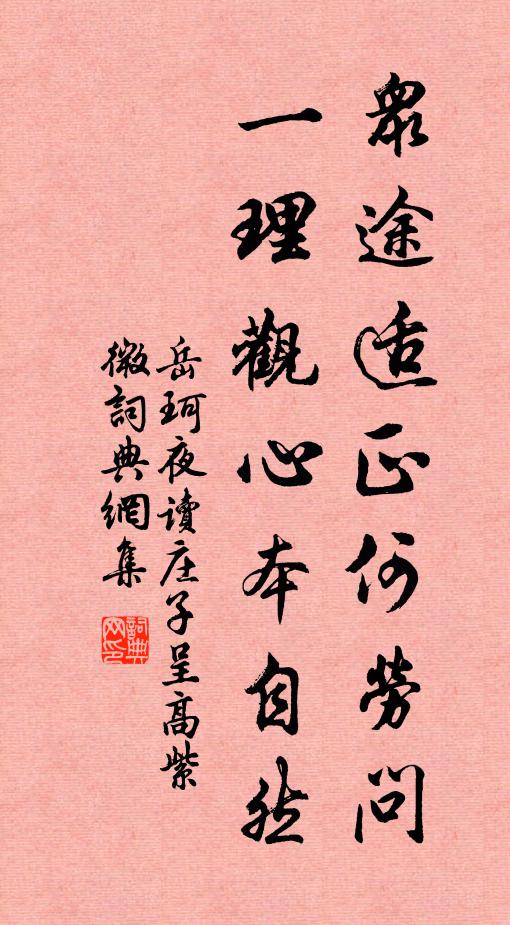 衆途适正何勞問
一理觀心本自然
岳珂夜讀庄子呈高紫
微詞典網集
詞典
网印